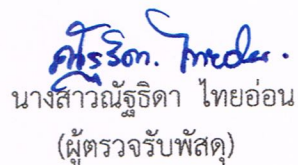 ณัฐธิดา ไทยอ่อน
นางสาวณัฐธิดา ไทยอ่อน
(ผู้ตรวจรับพัสดุ)